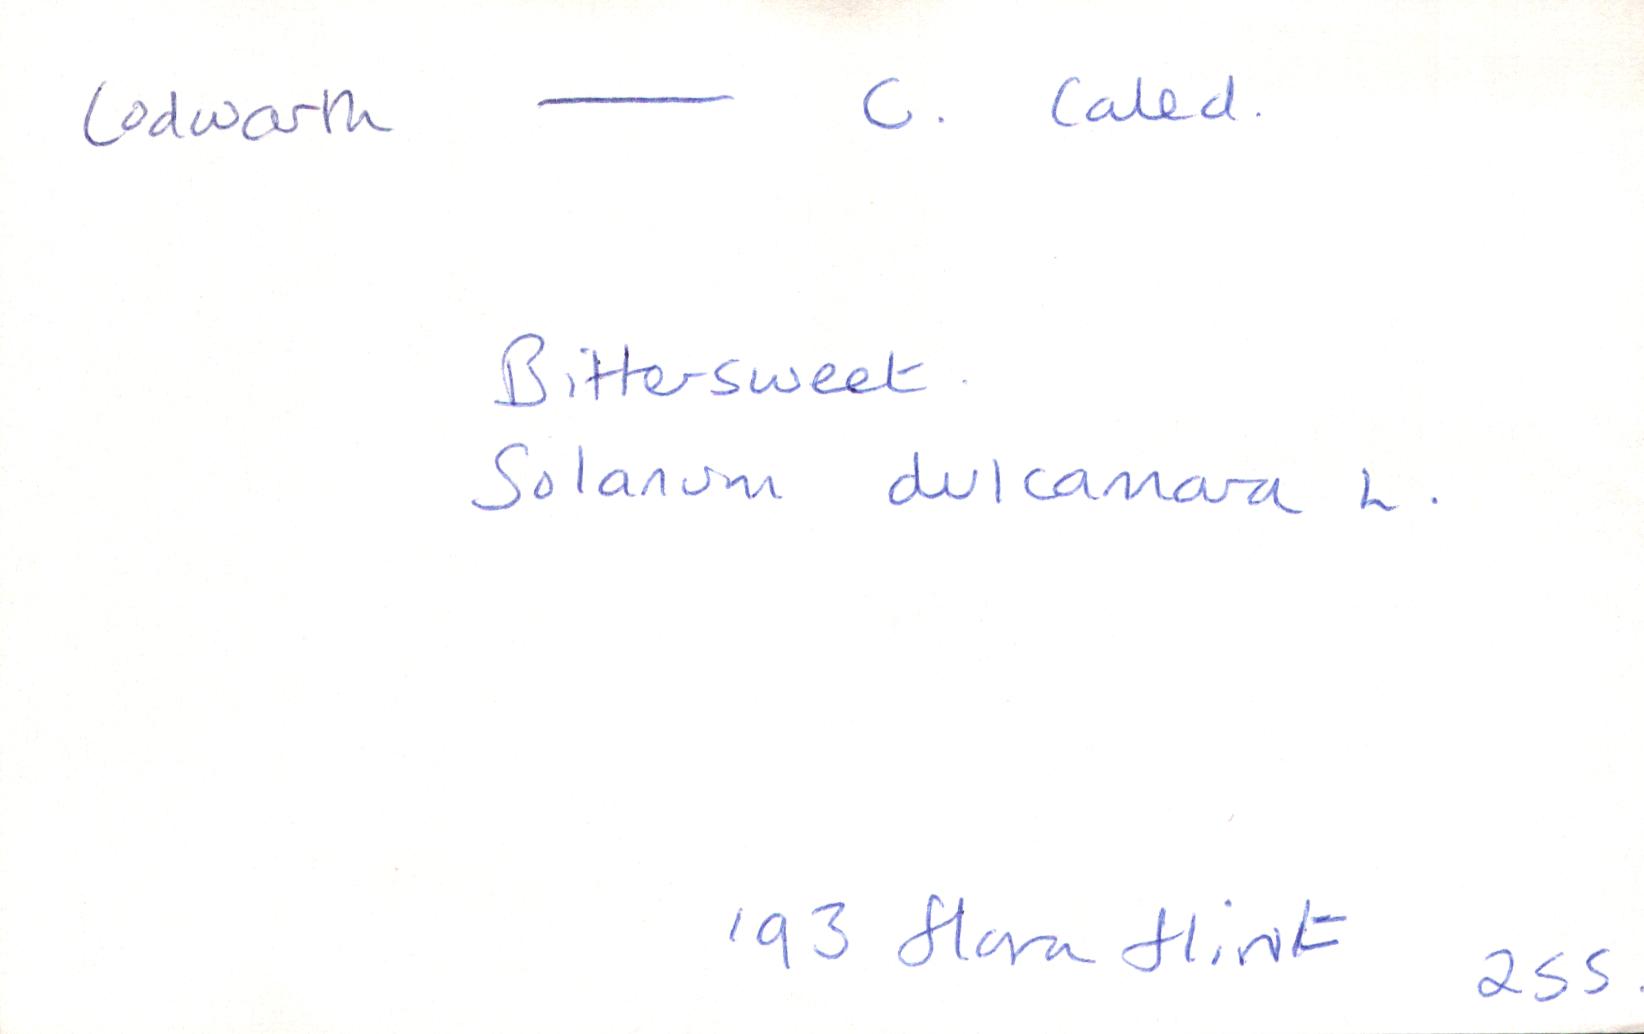 Codwarth — C. Caled.
Bittersweet.
Solanum dulcamara L.
'93 Flora Flint 255.